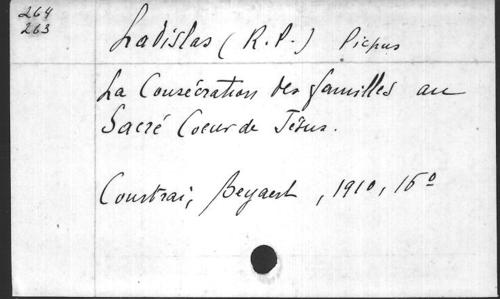 264
263
Ladislas (R.P.) Picpus
La Consécration des familles au
Sacré Coeur de Jésus.
Courtrai, Beyaert, 1910, 16º